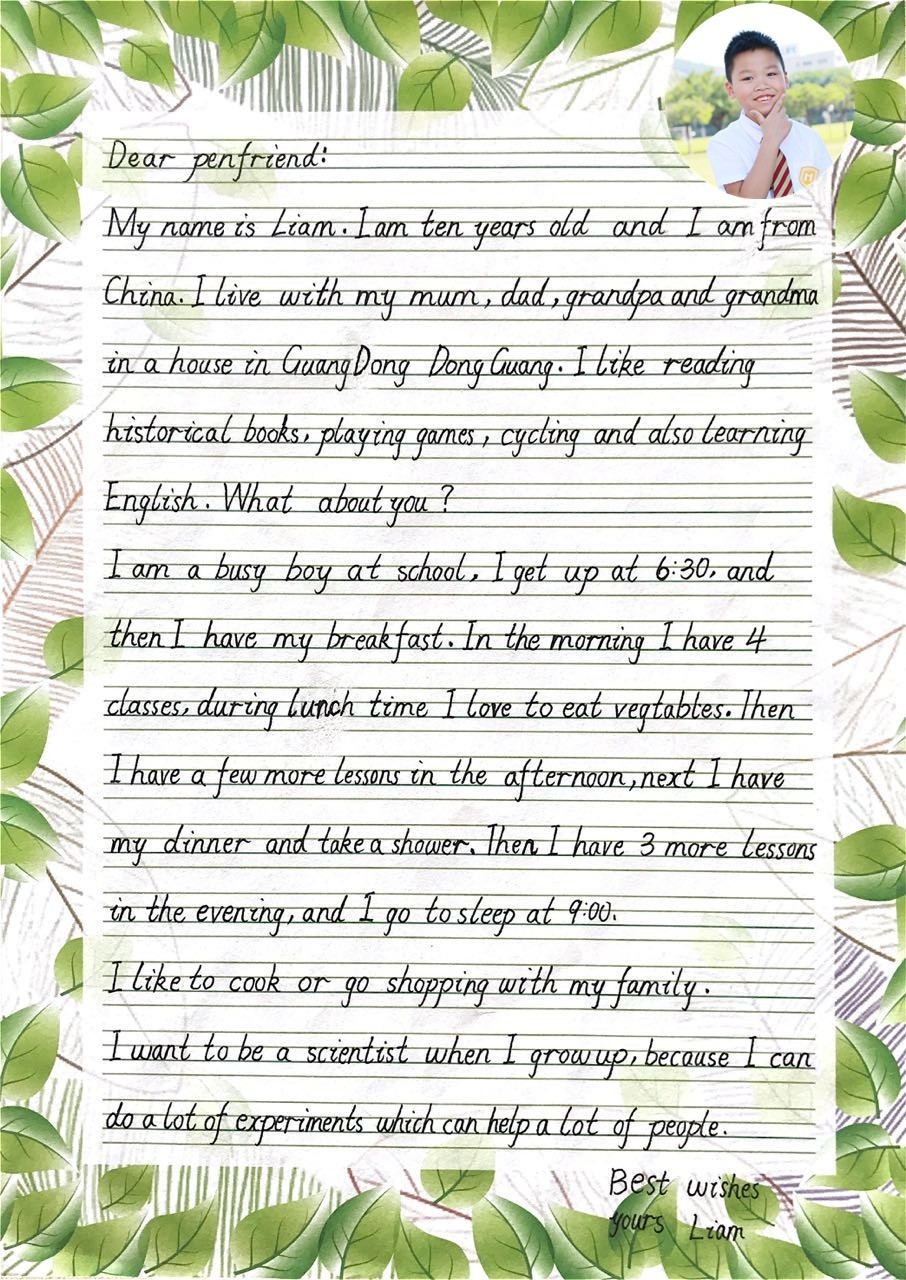 Dear penfriend:
My name is Liam. I am ten years old and I am from
China. I live with my mum, dad, grandpa and grandma
in a house in GuangDong DongGuang. I like reading
historical books, playing games, cycling and also learning
English. What about you?
I am a busy boy at school, I get up at 6:30, and
then I have my breakfast. In the morning I have 4
classes, during lunch time I love to eat vegtables. Then
I have a few more lessons in the afternoon, next I have
my dinner and take a shower. Then I have 3 more lessons
in the evening, and I go to sleep at 9:00.
I like to cook or go shopping with my family.
I want to be a scientist when I grow up, because I can
do a lot of experiments which can help a lot of people.
Best wishes
yours Liam